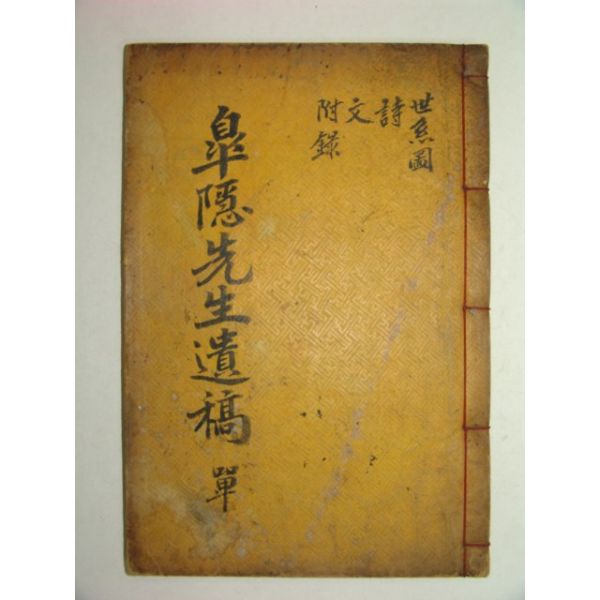 世系圖
詩
文
附錄
皐隱先生遺稿 單